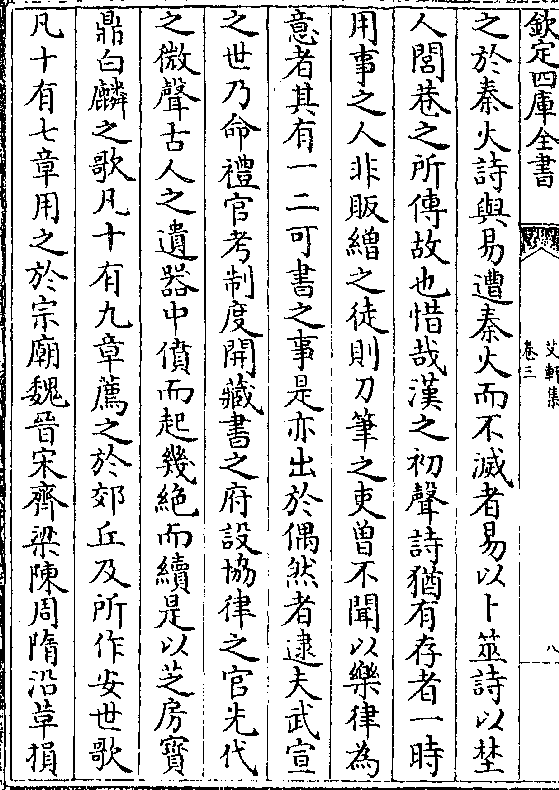 欽定四庫全書
艾軒集
卷三
八
之於秦火詩與易遭秦火而不滅者易以卜筮詩以埜
人閭巷之所傳故也惜哉漢之初聲詩猶有存者一時
用事之人非販繒之徒則刀筆之吏曾不聞以樂律為
意者其有一二可書之事是亦出於偶然者逮夫武宣
之世乃命禮官考制度開藏書之府設協律之官先代
之微聲古人之遺器中僨而起幾絶而續是以芝房寳
鼎白麟之歌凡十有九章薦之於郊丘及所作安世歌
凡十有七章用之於宗廟魏晉宋齊梁陳周隋沿革損